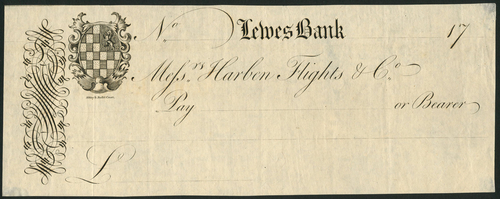 No Lewes Bank 17
Messrs Harben Flights & Co
Pay or Bearer
£